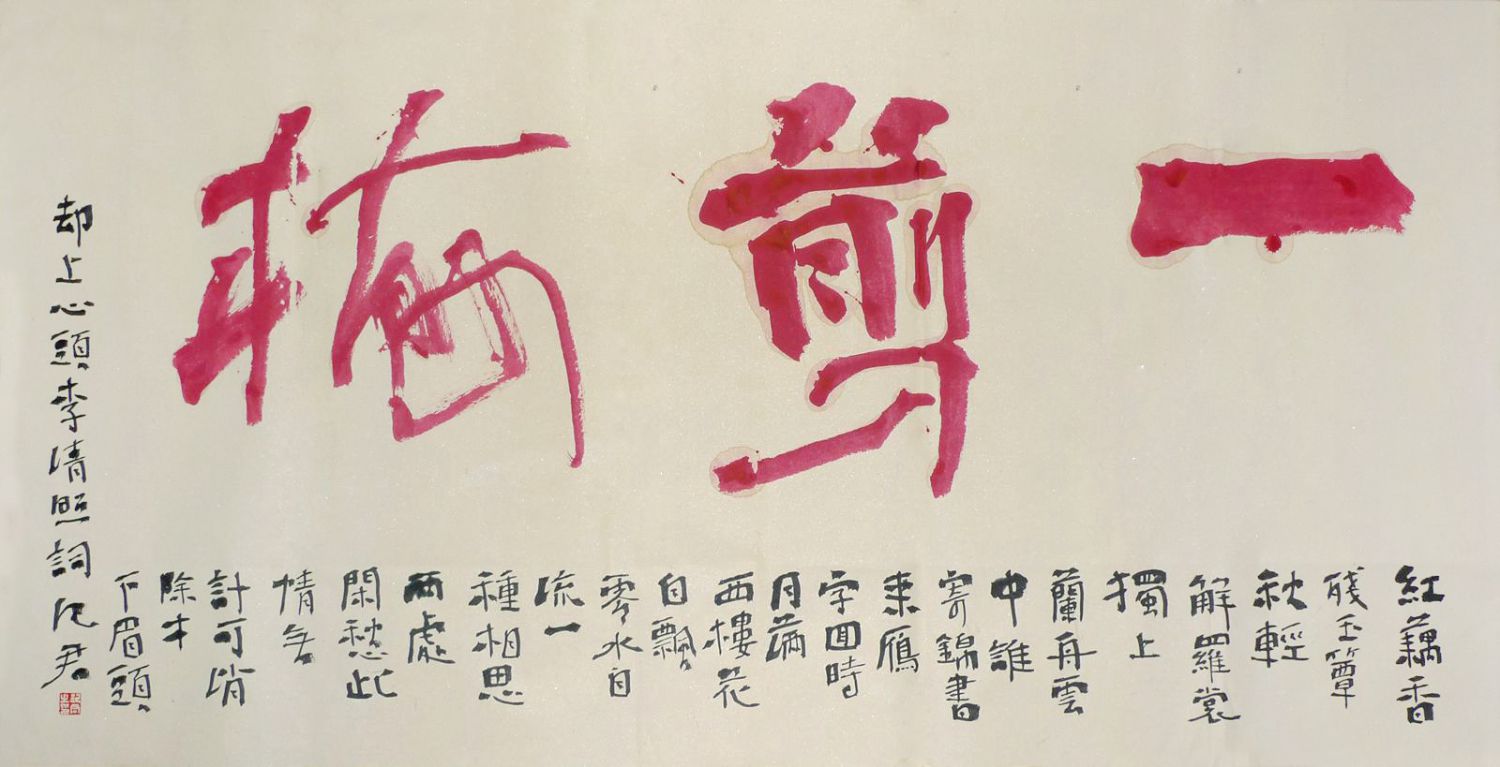 一剪梅
紅藕香
殘玉簟
秋輕
解羅裳
獨上
蘭舟雲
中誰
寄錦書
來鴈
字回時
月滿
西樓花
自飄
零水自
流一
種相思
兩處
閑愁此
情無
計可消
除才
下眉頭
却上心頭李清照詞君